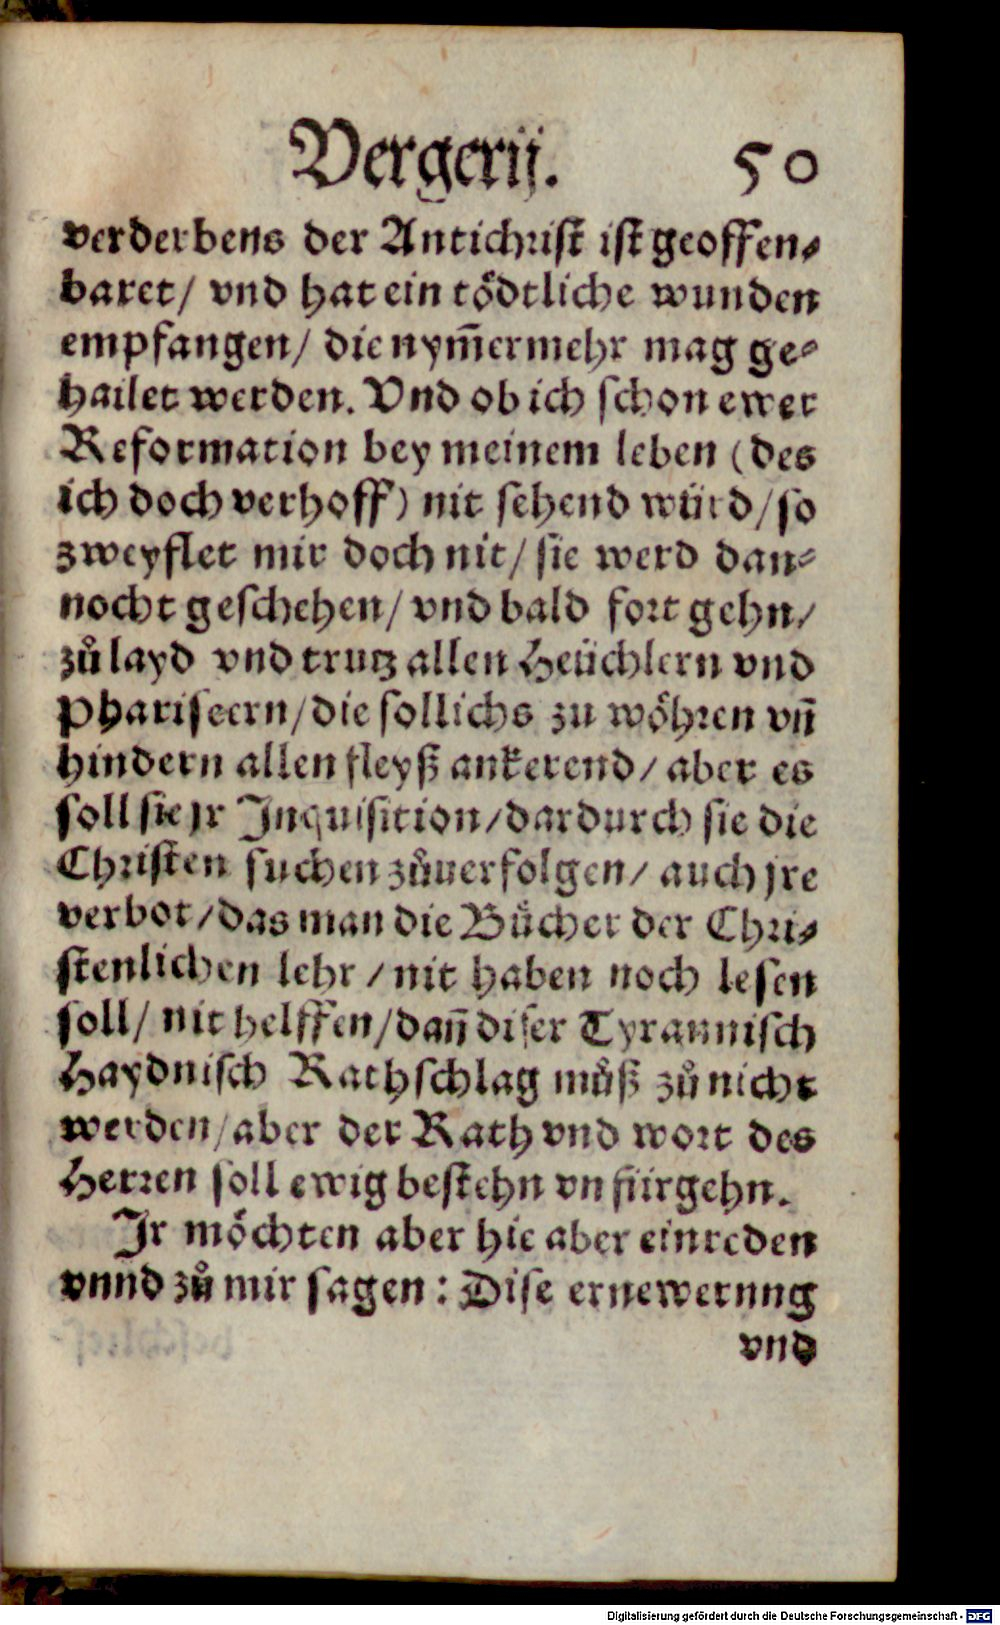 Vergerij. 50
verderbens der Antichrist ist geoffen-
baret/ vnd hat ein tödtliche wunden
empfangen/ die nym̃ermehr mag ge-
hailet werden. Vnd ob ich schon ewer
Reformation bey meinem leben (des
ich doch verhoff) nit sehend würd/ so
zweyflet mir doch nit/ sie werd dan-
nocht geschehen/ vnd bald fort gehn/
zů layd vnd trutz allen Heüchlern vnd
Phariseern/ die sollichs zu wöhren vñ
hindern allen fleyß ankerend/ aber es
soll sie jr Inquisition/ dardurch sie die
Christen suchen zůuerfolgen/ auch jre
verbot/ das man die Bücher der Chri-
stenlichen lehr/ nit haben noch lesen
soll/ nit helffen/ dañ diser Tyrannisch
Haydnisch Rathschlag můß zů nicht
werden/ aber der Rath vnd wort des
Herren soll ewig bestehn vn fürgehn.
Ir möchten aber hie aber einreden
vnnd zů mir sagen: Dise ernewerung
vnd
Digitalisierung gefördert durch die Deutsche Forschungsgemeinschaft - DFG